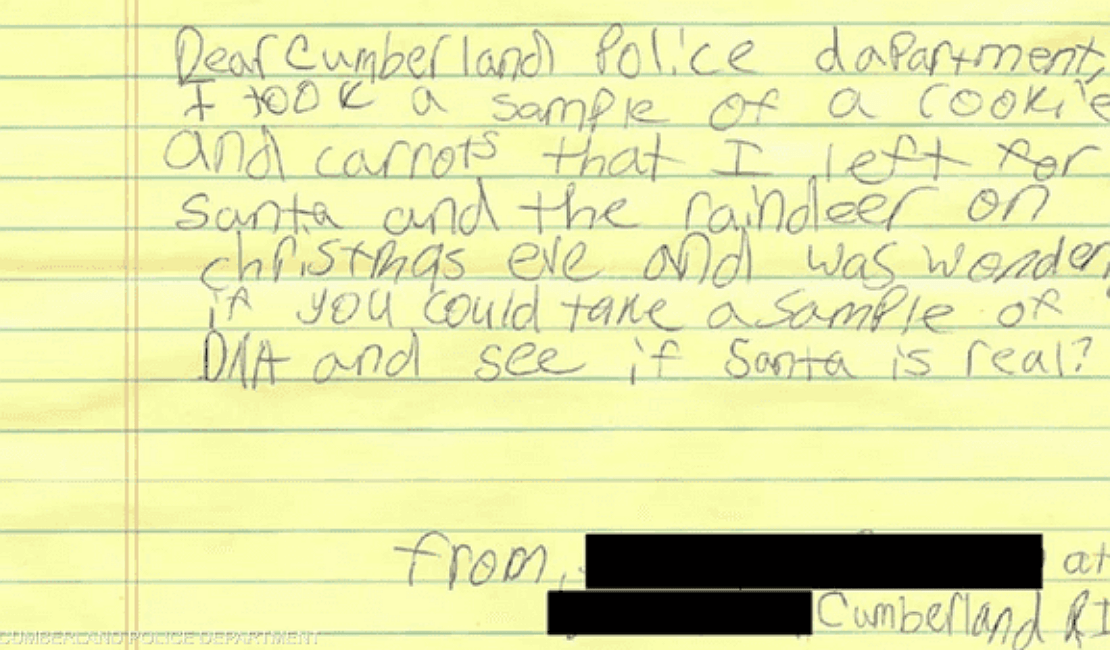 Dear Cumberland Police dapartment,
I took a sample of a cookie
and carrots that I left for
santa and the raindeer on
christmas eve and was wonder
if you could take a sample of
DNA and see if Santa is real?
from,
at
Cumberland RI
CUMBERLAND POLICE DEPARTMENT